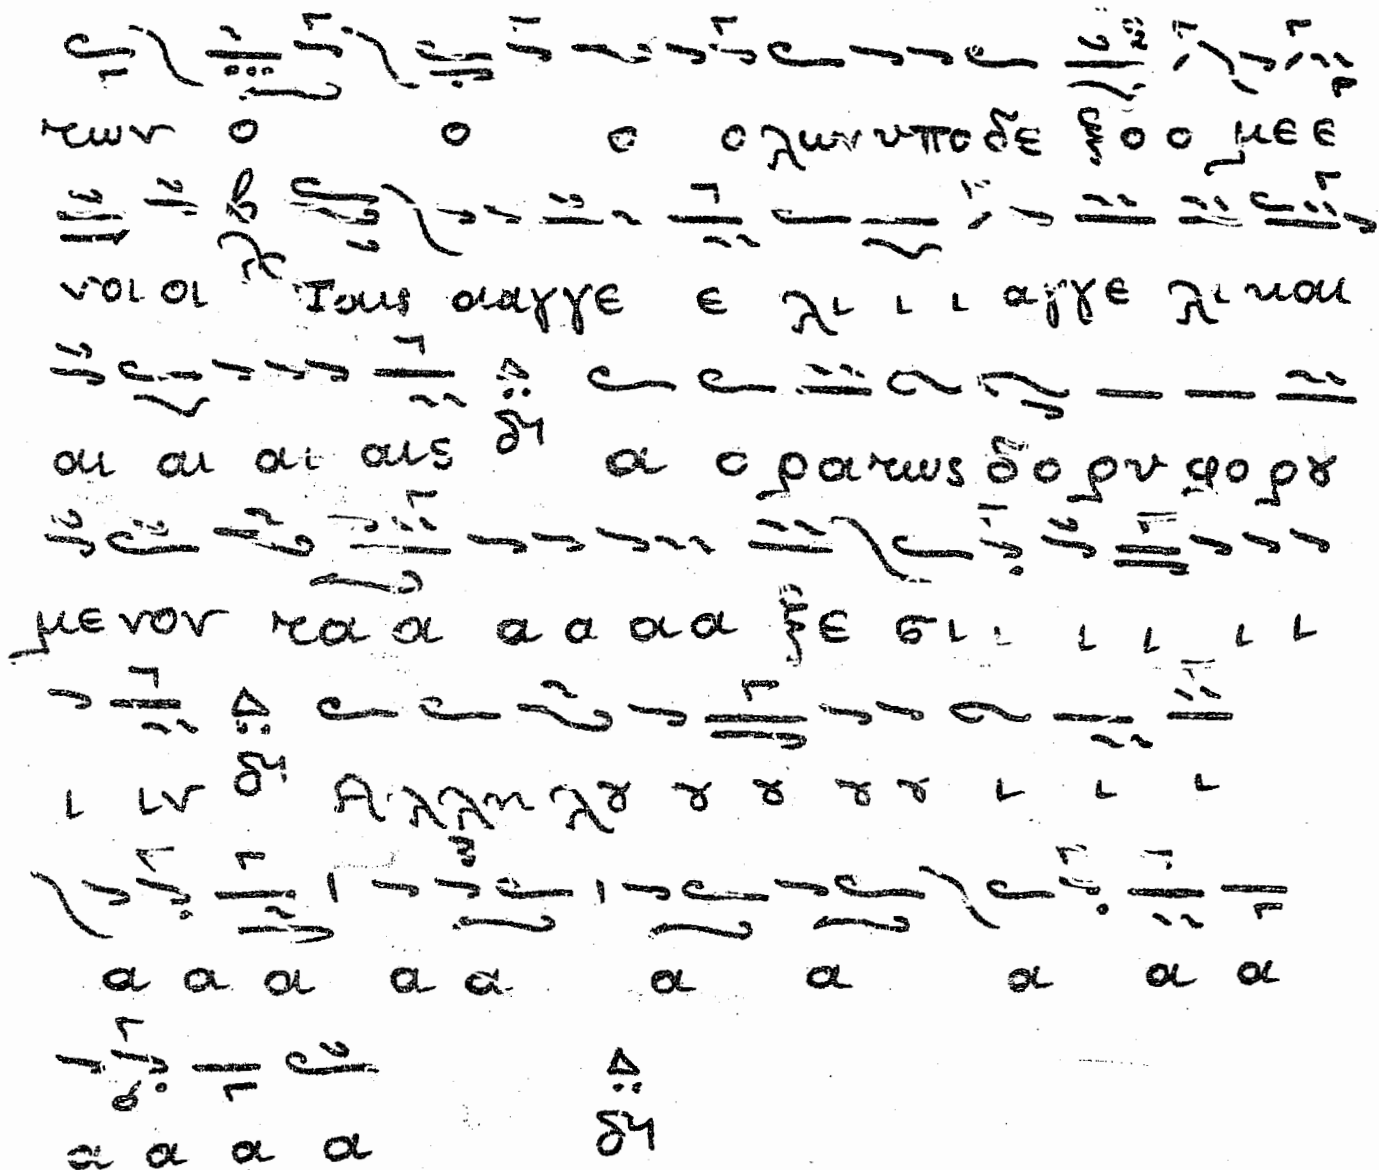 των ο ο ο ο λων υποδε ξο ο με ε
νοι οι Ταις ααγγε ε λι ι ι αγγε λι και
αι αι αι αις δη α ο ρατως δο ρυ φο ρȣ
μενον τα α α α α α ξε σι ι ι ι ι ι
ι ιν δη Αλληλȣ ȣ ȣ ȣ ȣ ι ι ι
α α α α α α α α α α
α α α α δη